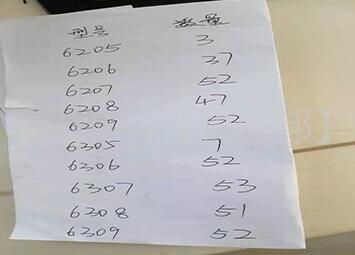 型号 数量
6205 3
6206 37
6207 52
6208 47
6209 52
6305 7
6306 52
6307 53
6308 51
6309 52